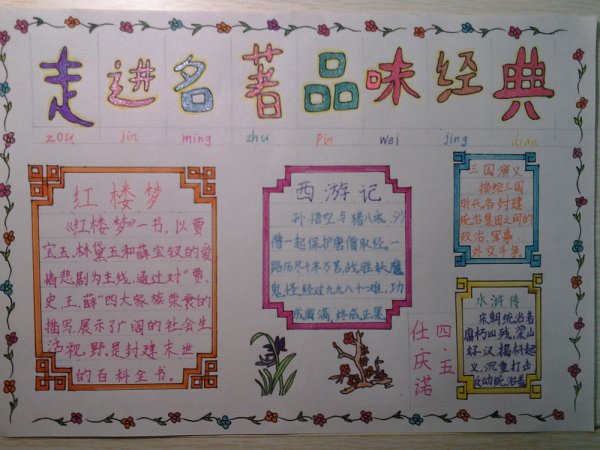 走进名著品味经典
zou jin ming zhu Pin wei jing dian
红楼梦
《红楼梦》一书,以贾
宝玉、林黛玉和薛宝钗的爱
情悲剧为主线,通过对“贾、
史、王、薛”四大家族荣衰的
描写,展示了广阔的社会生
活视野,是封建末世
的百科全书。
西游记
孙悟空与猪八戒、沙
僧一起保护唐僧取经,一
路历尽千来万苦,战胜妖魔
鬼怪,经过九九八十一难,功
成圆满,终成正果。
三国演义
描绘三国
时代各封建
统治集团之间的
政治、军事、
外交斗争
水浒传
宋朝统治者
腐朽凶残,梁山
好汉,揭杆起
义,沉重打击
反动统治者
四、五
任庆诺